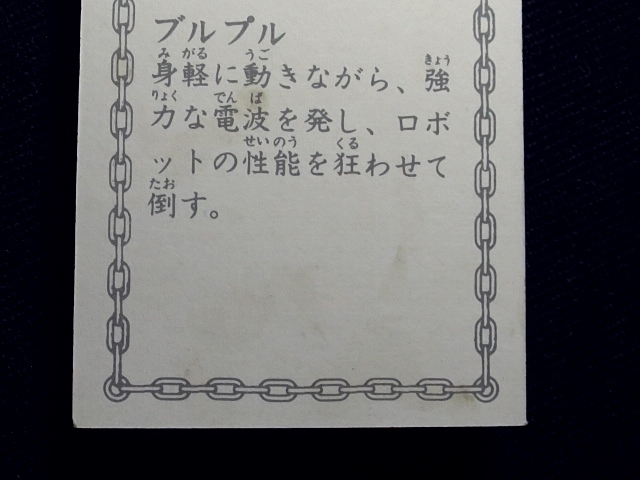 ブルプル
身軽に動きながら、強
力な電波を発し、ロボ
ットの性能を狂わせて
倒す。